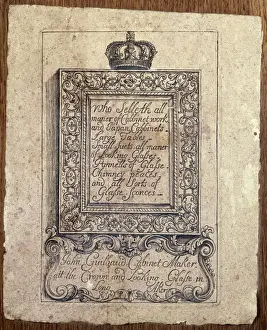 Who Selleth all
maner of Cabinet work
and Japan Cabinets
Large Tables
Small Suets all maner
of Looking Glases
Pannells of Glasse
Chimney peaces
and all Sorts of
Glasse Sconces
John Cabinet Maker
att the Crowne and Looking Glasse in
Long